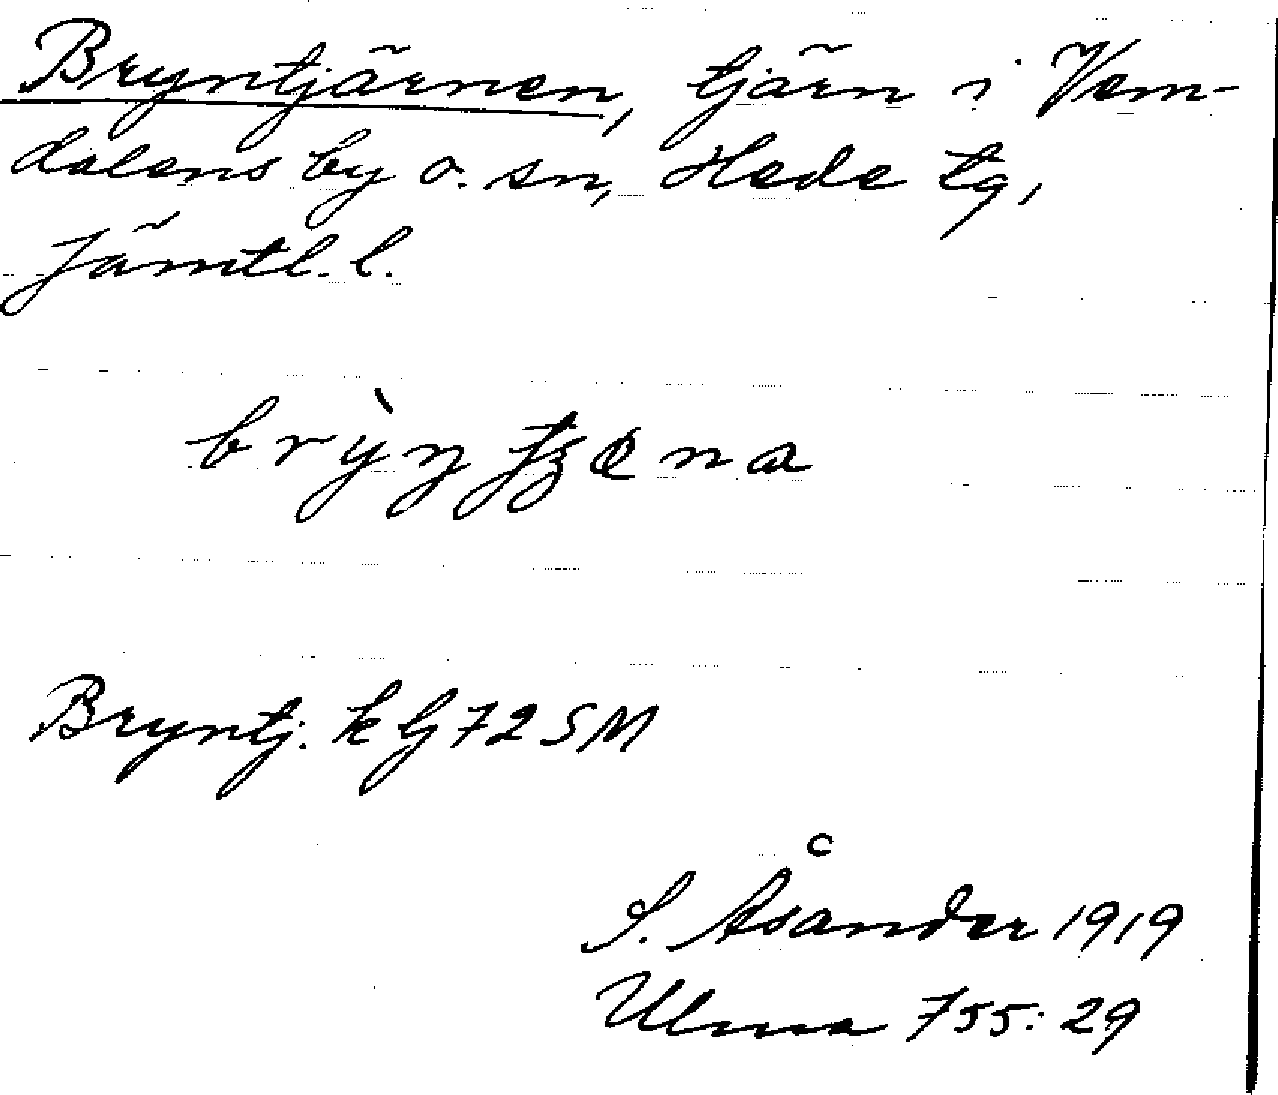 Bryntjärnen, tjärn i Vem-
dalens by o. sn, Hede tg,
Jämtl. l.
Bryntj. k bj 72 SM
S. Åsander 1919
Ulma 755: 29